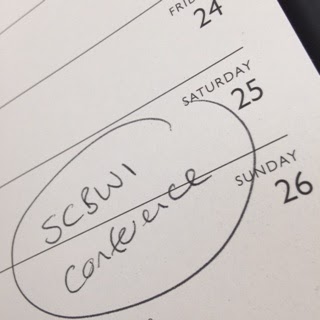 FRI
24
SATURDAY
25
SCBWI
Conference
SUNDAY
26